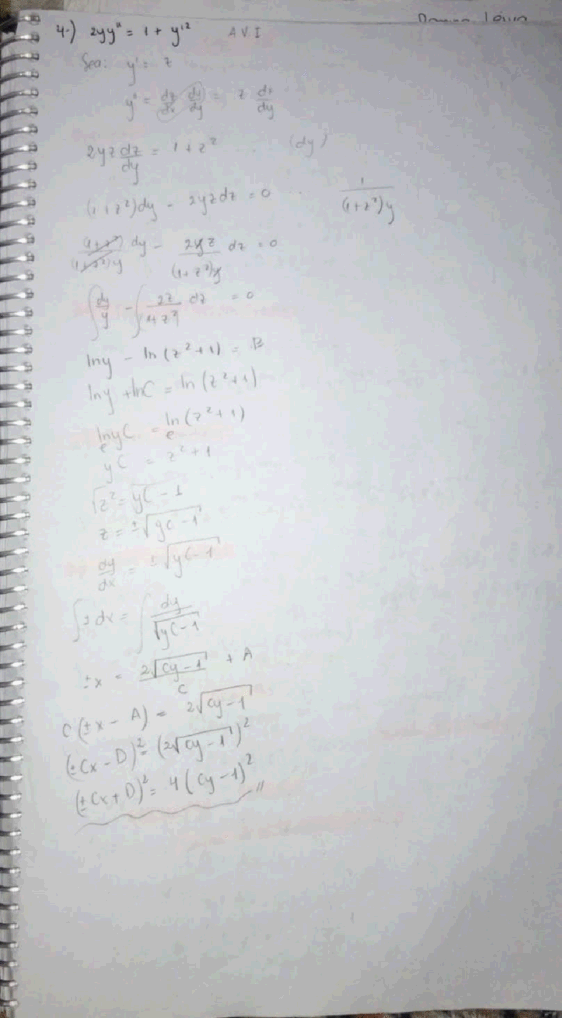 4.) 2yy" = 1 + y'² A V I
Sea: y' = z
y" = dz/dx dx/dy = z dz/dy
2yz dz/dy = 1 + z² (dy)
(1 + z²)dy - 2yz dz = 0 1/((1+z²)y)
(1+z²)/((1+z²)y) dy - 2yz/((1+z²)y) dz = 0
∫ dy/y - ∫ 2z/(1+z²) dz = 0
lny - ln(z²+1) = B
lny + lnC = ln(z²+1)
e^lnyC = e^ln(z²+1)
yC = z²+1
√z² = √yC - 1
z = ±√yC - 1
dy/dx = ±√yC - 1
∫± dx = ∫ dy/√yC-1
±x = 2√Cy-1/C + A
C(±x - A) = 2√Cy-1
(±Cx - D)² = (2√Cy-1)²
(±Cx + D)² = 4(Cy-1)² //